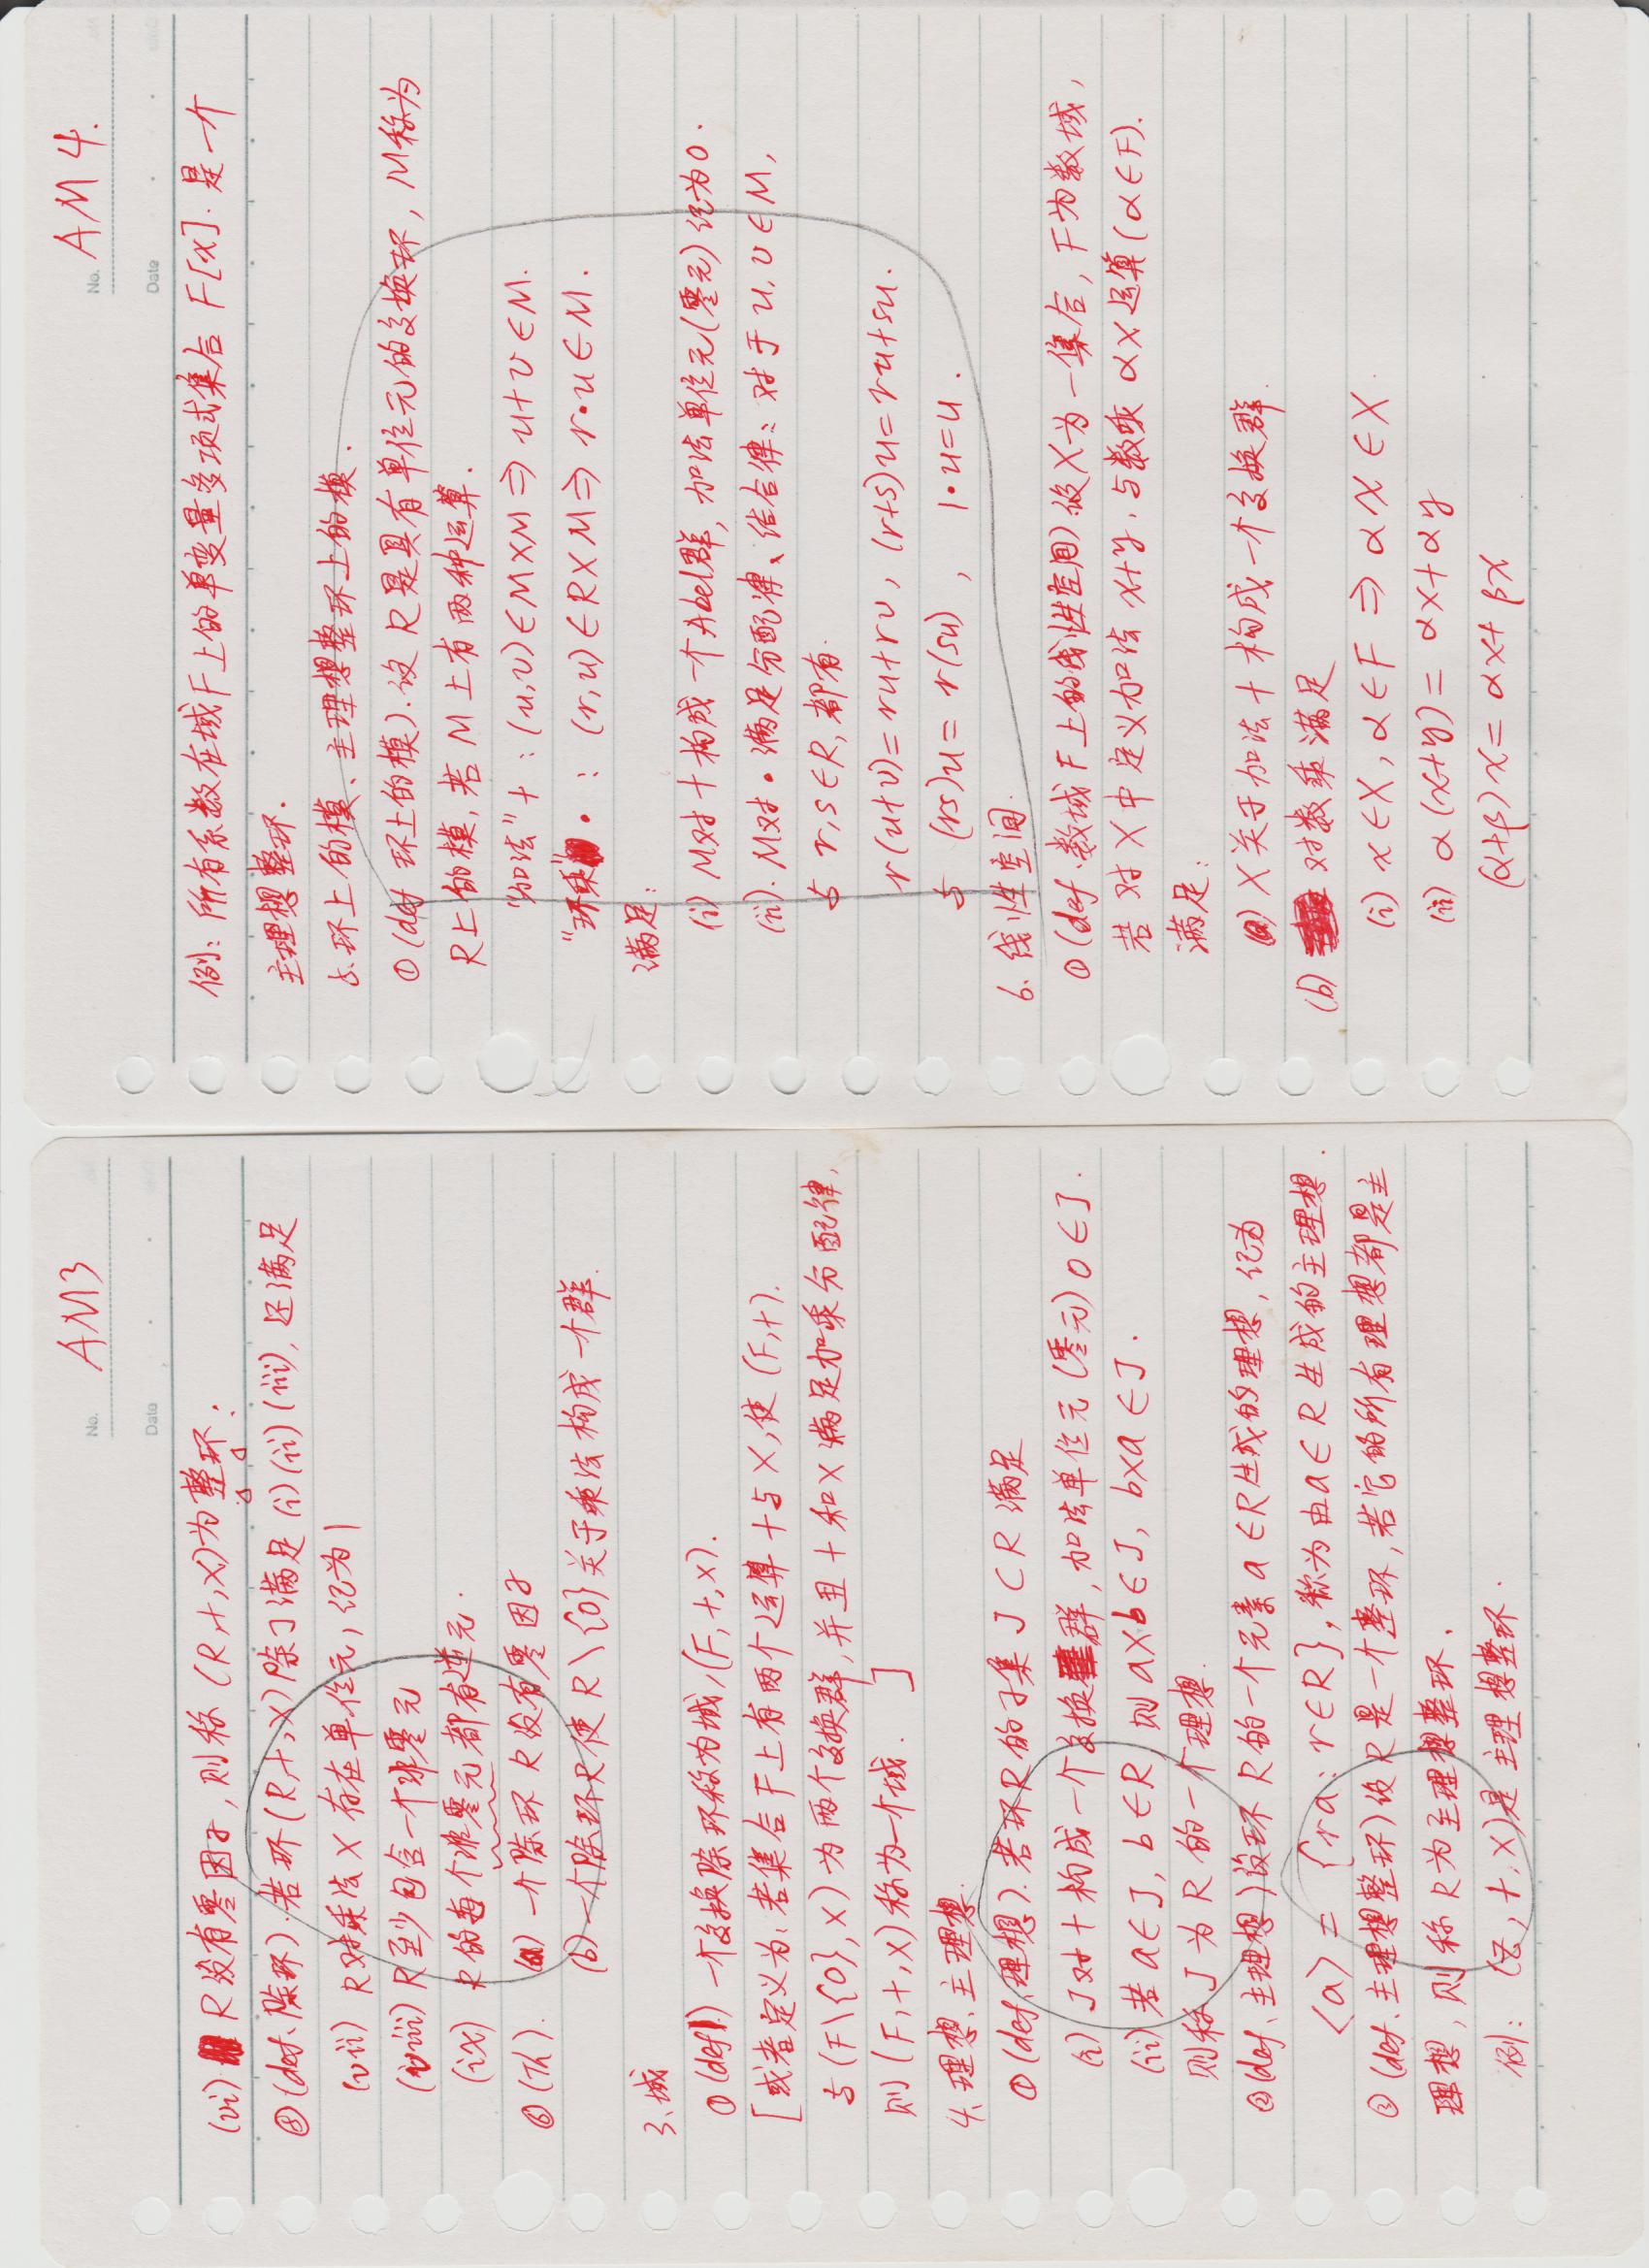 No. AM3
Date
(vi) R没有零因子,则称(R,+,×)为整环.
(def、除环).若环(R,+,×)除了满足(i)(ii)(iii),还满足
(vii) R对乘法×存在单位元,记为1
(viii) R至少包含一个非零元
(ix) R的每个非零元都有逆元.
⑥(Th). (a) 一个除环R没有零因子
(b) 一个除环R使R\{0}关于乘法构成一个群.
3、域
①(def1) 一个交换除环称为域,(F,+,×).
[或者定义为:若集合F上有两个运算+与×,使(F,+).
与(F\{0},×)为两个交换群,并且+和×满足加乘分配律,
则(F,+,×)称为一个域. ]
4、理想、主理想.
①(def、理想).若环R的子集J⊂R满足
(i) J对+构成一个交换群,加法单位元(零元)0∈J.
(ii) 若a∈J, b∈R 则a×b∈J, b×a∈J.
则称J为R的一个理想.
②(def、主理想)设环R的一个元素a∈R生成的理想,记为
⟨a⟩= {ra: r∈R},称为由a∈R生成的主理想.
③(def、主理想整环)设R是一个整环,若它的所有理想都是主
理想,则称R为主理想整环.
例: (Z,+,×)是主理想整环.
No. AM 4.
Date
例:所有系数在域F上的单变量多项式集合F[x].是一个
主理想整环.
5.环上的模、主理想整环上的模.
①(def 环上的模).设R是具有单位元的交换环,M称为
R上的模,若M上有两种运算.
"加法"+:(u,v)∈M×M⇒u+v∈M.
"环乘"•:(r,u)∈R×M⇒r•u∈M.
满足:
(i) M对+构成一个Abel群,加法单位元(零元)记为0.
(ii). M对•满足分配律、结合律:对于u,v∈M,
与r,s∈R,都有.
r(u+v)=ru+rv, (r+s)u=ru+su.
与 (rs)u=r(su), 1•u=u.
6. 线性空间.
①(def.数域F上的线性空间)设X为一集合,F为数域,
若对X中定义加法x+y.与数乘αx运算(α∈F).
满足:
(a) X关于加法+构成一个交换群.
(b) 对数乘满足
(i) x∈X,α∈F⇒αx∈X.
(ii) α(x+y)=αx+αy
(α+β)x=αx+βx